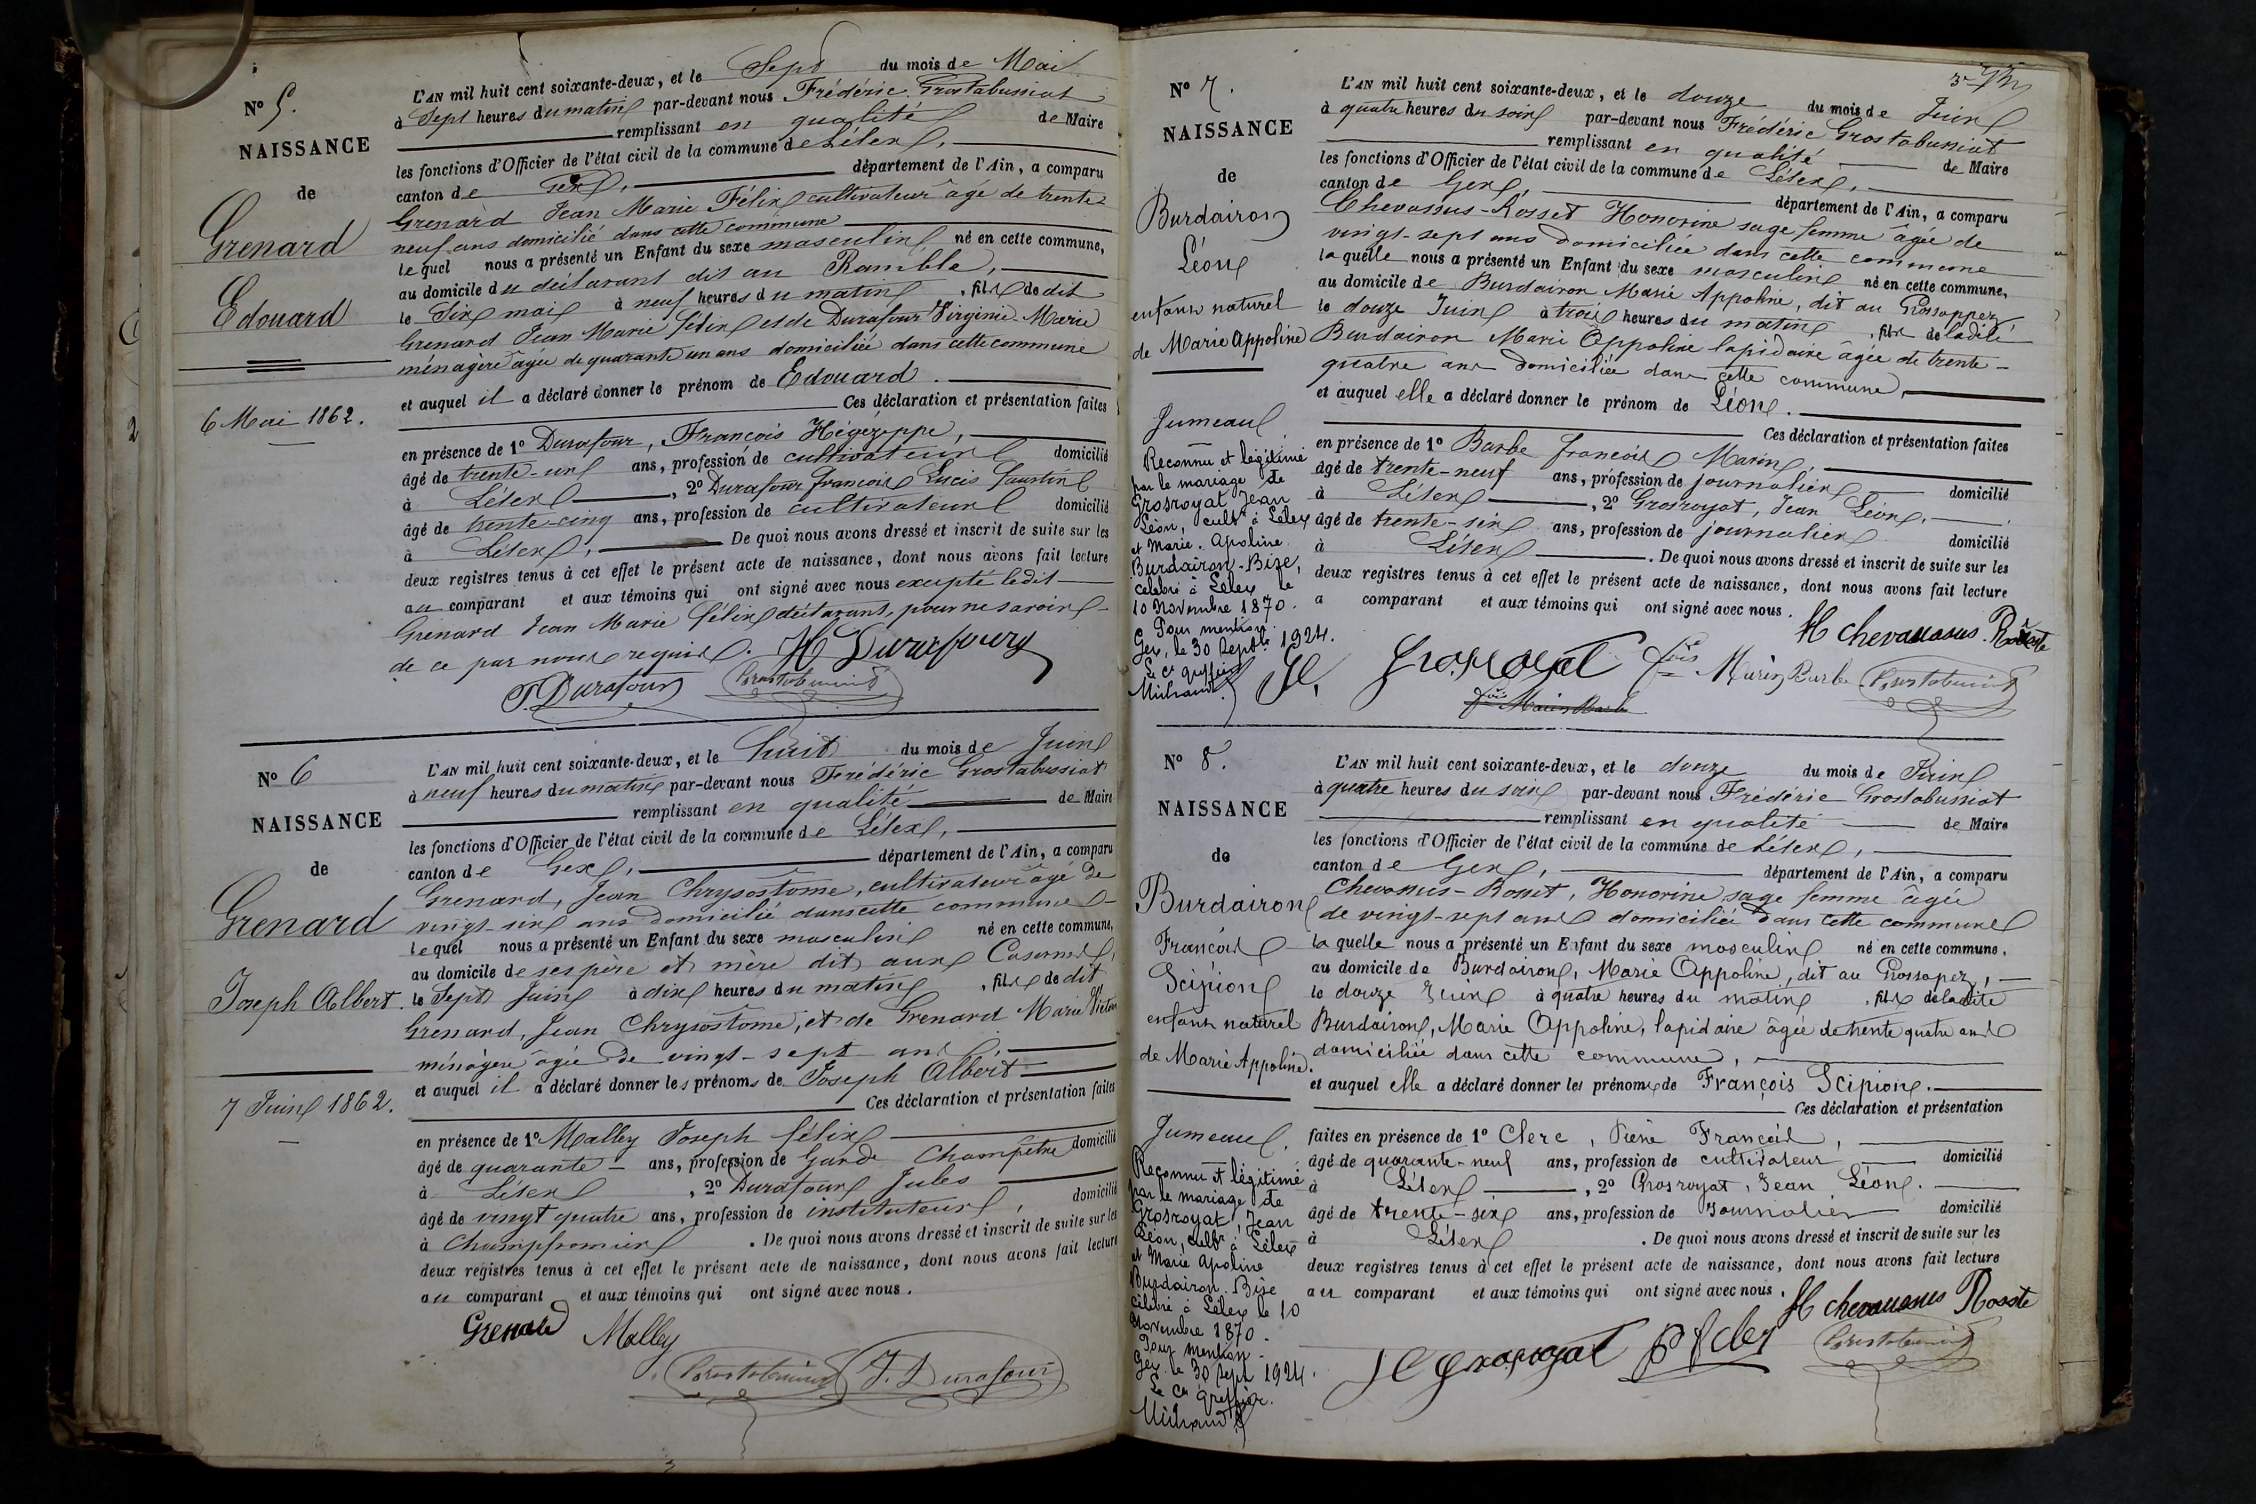 N° 5.
NAISSANCE
de
Grenard
Edouard
6 Mai 1862.
L'AN mil huit cent soixante-deux, et le Sept du mois de Mai
à Sept heures du matin par-devant nous Frédéric Grostabussiat
remplissant en qualité de Maire
les fonctions d'Officier de l'état civil de la commune de Lélex,
canton de Gex, département de l'Ain, a comparu
Grenard Jean Marie Félix cultivateur âgé de trente
neuf ans domicilié dans cette commune
lequel nous a présenté un Enfant du sexe masculin né en cette commune,
au domicile du déclarant dit au Ramble,
le Six mai à neuf heures du matin, fils de dit
Grenard Jean Marie Félix et de Durafour Virginie Marie
ménagère âgée de quarante un ans domiciliée dans cette commune
et auquel il a déclaré donner le prénom de Edouard.
Ces déclaration et présentation faites
en présence de 1° Durafour, François Hégézippe,
âgé de trente-un ans, profession de cultivateur domicilié
à Lélex, 2° Durafour François Faustin
âgé de trente-cinq ans, profession de cultivateur domicilié
à Lélex, De quoi nous avons dressé et inscrit de suite sur les
deux registres tenus à cet effet le présent acte de naissance, dont nous avons fait lecture
au comparant et aux témoins qui ont signé avec nous excepté ledit
Grenard Jean Marie Félix déclarant, pour ne savoir
de ce par nous requis. H Durafourg
F. Durafour Grostabussiat
N° 6
NAISSANCE
de
Grenard
Joseph Albert.
7 Juin 1862.
L'AN mil huit cent soixante-deux, et le huit du mois de Juin
à neuf heures du matin par-devant nous Frédéric Grostabussiat
remplissant en qualité de Maire
les fonctions d'Officier de l'état civil de la commune de Lélex,
canton de Gex, département de l'Ain, a comparu
Grenard, Jean Chrysostome, cultivateur âgé de
vingt-six ans domicilié dans cette commune
lequel nous a présenté un Enfant du sexe masculin né en cette commune,
au domicile de ses père et mère dit aux Casernes,
le Sept Juin à dix heures du matin, fils de dit
Grenard, Jean Chrysostome, et de Grenard Marie
ménagère âgée de vingt-sept ans,
et auquel il a déclaré donner les prénoms de Joseph Albert
Ces déclaration et présentation faites
en présence de 1° Malley Joseph Félix
âgé de quarante ans, profession de Garde Champêtre domicilié
à Lélex, 2° Durafour Jules
âgé de vingt quatre ans, profession de instituteur, domicilié
à Champfromier. De quoi nous avons dressé et inscrit de suite sur les
deux registres tenus à cet effet le présent acte de naissance, dont nous avons fait lecture
au comparant et aux témoins qui ont signé avec nous.
Grenard Malley
Grostabussiat J. Durafour
N° 7.
NAISSANCE
de
Burdairon
Léon
enfant naturel
de Marie Appoline
Jumeau
Reconnu et légitimé
par le mariage de
Grosroyat Jean
Léon, cultr à Lélex
et Marie. Apoline
Burdairon-Bize,
célébré à Lélex le
10 Novembre 1870.
Pour mention.
Gex, le 30 Septbre 1924.
Le cs greffier
L'AN mil huit cent soixante-deux, et le douze du mois de Juin
à quatre heures du soir par-devant nous Frédéric Grostabussiat
remplissant en qualité de Maire
les fonctions d'Officier de l'état civil de la commune de Lélex,
canton de Gex, département de l'Ain, a comparu
Chevassus-Rosset Honorine sage femme âgée de
vingt-sept ans domiciliée dans cette commune
laquelle nous a présenté un Enfant du sexe masculin né en cette commune,
au domicile de Burdairon Marie Appoline, dit au Grossappez
le douze Juin à trois heures du matin, fils de ladite
Burdairon Marie Appoline lapidaire âgée de trente-
quatre ans domiciliée dans cette commune,
et auquel elle a déclaré donner le prénom de Léon.
Ces déclaration et présentation faites
en présence de 1° Barbe françois Marin,
âgé de trente-neuf ans, profession de journalier domicilié
à Lélex, 2° Grosroyat, Jean Léon,
âgé de trente-six ans, profession de journalier domicilié
à Lélex. De quoi nous avons dressé et inscrit de suite sur les
deux registres tenus à cet effet le présent acte de naissance, dont nous avons fait lecture
a comparant et aux témoins qui ont signé avec nous.
H chevassus Rosset
Grosroyat fois Marin Barbe Grostabussiat
fois Marin Barbe
N° 8.
NAISSANCE
de
Burdairon
François
Scipion
enfant naturel
de Marie Appoline.
Jumeau.
Reconnu et légitimé
par le mariage de
Grosroyat, Jean
Léon, cultr à Lélex
et Marie Apoline
Burdairon-Bize
célébré à Lélex le 10
Novembre 1870.
Pour mention.
Gex le 30 Sept 1924.
Le cs Greffier.
L'AN mil huit cent soixante-deux, et le douze du mois de Juin
à quatre heures du soir par-devant nous Frédéric Grostabussiat
remplissant en qualité de Maire
les fonctions d'Officier de l'état civil de la commune de Lélex,
canton de Gex, département de l'Ain, a comparu
Chevassus-Rosset, Honorine sage femme âgée
de vingt-sept ans domiciliée dans cette commune
laquelle nous a présenté un Enfant du sexe masculin né en cette commune.
au domicile de Burdairon, Marie Appoline, dit au Grossapez,
le douze Juin à quatre heures du matin, fils de ladite
Burdairon, Marie Appoline, lapidaire âgée de trente quatre ans
domiciliée dans cette commune,
et auquel elle a déclaré donner les prénoms de François Scipion.
Ces déclaration et présentation
faites en présence de 1° Clerc, Pierre François,
âgé de quarante-neuf ans, profession de cultivateur domicilié
à Lélex, 2° Grosroyat, Jean Léon.
âgé de trente-six ans, profession de Journalier domicilié
à Lélex. De quoi nous avons dressé et inscrit de suite sur les
deux registres tenus à cet effet le présent acte de naissance, dont nous avons fait lecture
au comparant et aux témoins qui ont signé avec nous.
H chevassus Rosset
J L Grosroyat P f clerc Grostabussiat